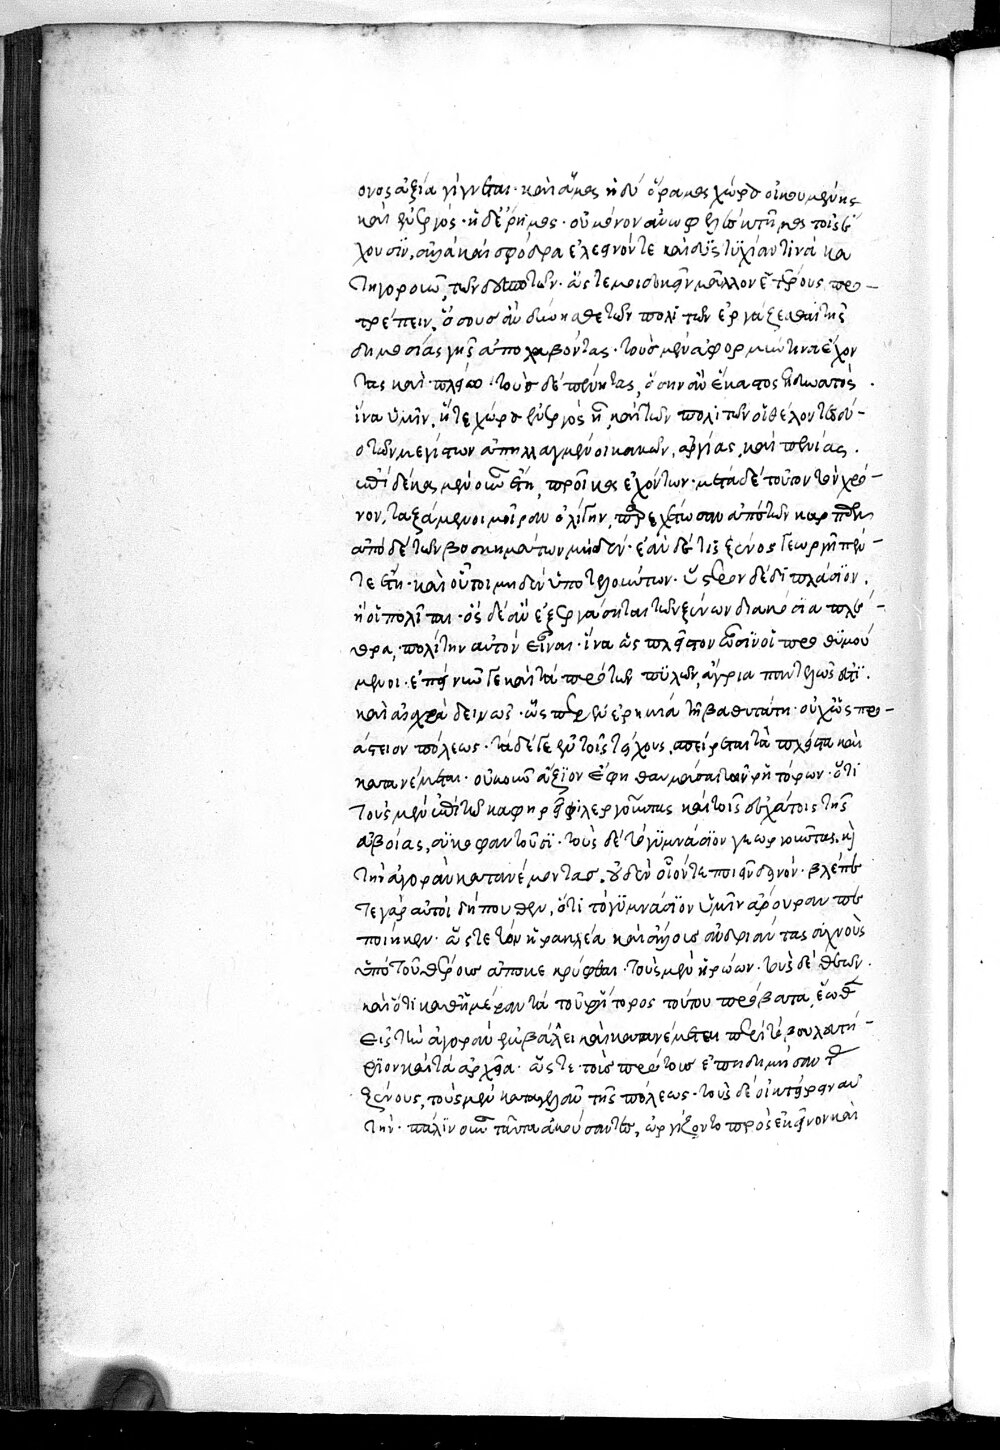 ονος ἀξία γίγνεται· καὶ ἅμα ἡδὺ ὅραμα χώρα οἰκουμένη
καὶ ἐνεργός· ἡ δὲ ἔρημος· οὐ μόνον ἀνωφελὲς κτῆμα τοῖς ἔ
χουσϊν, ἀλλὰ καὶ σφόδρα ἐλεεινόν τε καὶ δυστυχίαν τινὰ κα
τηγοροῦν, τῶν δεσποτῶν· ὥς τέ μοι δοκεῖν μᾶλλον ἑτέρους, προ-
τρέπειν, ὅσους ἂν δύνησθε τῶν πολιτῶν ἐργάζεσθαι τῆς
δημοσίας γῆς ἀπολαβόντας· τοὺς μὲν ἀφορμήν τινα ἔχον
τας καὶ πλείω· τοὺς δὲ πένητας, ὅσην ἂν ἕκαστος ᾖ δυνατὸς.
ἵνα ὑμῖν, ἥ τε χώρα ἐνεργὸς ᾖ, καὶ τῶν πολιτῶν οἱ θέλοντες δύ-
ο τῶν μεγίστων ἀπηλλαγμένοι κακῶν, ἀργίας, καὶ πενίας.
ἐπὶ δέκα μὲν οὖν ἔτη, προῖκα ἐχόντων· μετὰ δὲ τοῦτον τὸν χρό-
νον, ταξάμενοι μοῖραν ὀλίγην, παρεχέτωσαν ἀπὸ τῶν καρπῶν
ἀπὸ δὲ τῶν βοσκημάτων μηδέν· ἐὰν δέ τις ξένος γεωργῇ πέν-
τε ἔτη· καὶ οὗτοι μηδὲν ὑποτελούντων. ὕστερον δὲ διπλάσϊον.
ἢ οἱ πολῖται· ὃς δὲ ἂν ἐξεργάσηται τῶν ξένων διακόσϊα πλέ-
θρα, πολίτην αὐτὸν εἶναι· ἵνα ὡς πλεῖστον ὦσϊν οἱ προθυμού
μενοι· ἐπεὶ νῦν γε καὶ τὰ πρὸ τῶν πϋλῶν, ἄγρια παντελῶς ἐστϊ.
καὶ αἰσχρὰ δεινῶς· ὥσπερ ἐν ἐρημία τῆ βαθυτάτη· οὐχ ὡς προ-
άστειον πόλεως. τὰ δέ γε ἐντὸς τείχους, σπείρεται τὰ πλεῖστα καὶ
κατανέμεται· οὐκοῦν ἄξϊον ἔφη θαυμάσαι τῶν ῥητόρων· ὅτι
τοὺς μὲν ἐπὶ τῶ καφηρεῖ φιλεργοῦντας καὶ τοῖς ἐσχάτοις τῆς
εὐβοίας, συκοφαντοῦσϊ· τοὺς δὲ τὸ γϋμνάσϊον γεωργοῦντας. κὶ
τὴν ἀγορὰν κατανέμοντας. οὐδὲν οἴονται ποιεῖν δεινόν· βλέπε
τε γὰρ αὐτοὶ δήπουθεν, ὅτι τὸ γϋμνάσϊον ὑμῖν ἄρουραν πε
ποιήκασιν· ὥς τε τὸν ἡρακλέα καὶ ἄλλους ἀνδριάντας συχνοὺς
ὑπὸ τοῦ θέρους ἀποκεκρύφθαι· τοὺς μὲν ἡρώων· τοὺς δὲ θεῶν.
καὶ ὅτι καθ' ἡμέραν τὰ τοῦ ῥήτορος τούτου πρόβατα, ἕωθεν
εἰς τὴν ἀγορὰν ἐμβάλλει καὶ κατανέμεται περὶ τὸ βουλευτή-
ρϊον καὶ τὰ ἀρχεῖα· ὥς τε τοὺς πρῶτον ἐπιδημήσαντας
ξένους, τοὺς μὲν καταγελᾶν τῆς πόλεως· τοὺς δὲ οἰκτείρειν αὐ
τήν· πάλϊν οὖν ταῦτα ἀκούσαντες, ὠργίζοντο πρὸς ἐκεῖνον καὶ